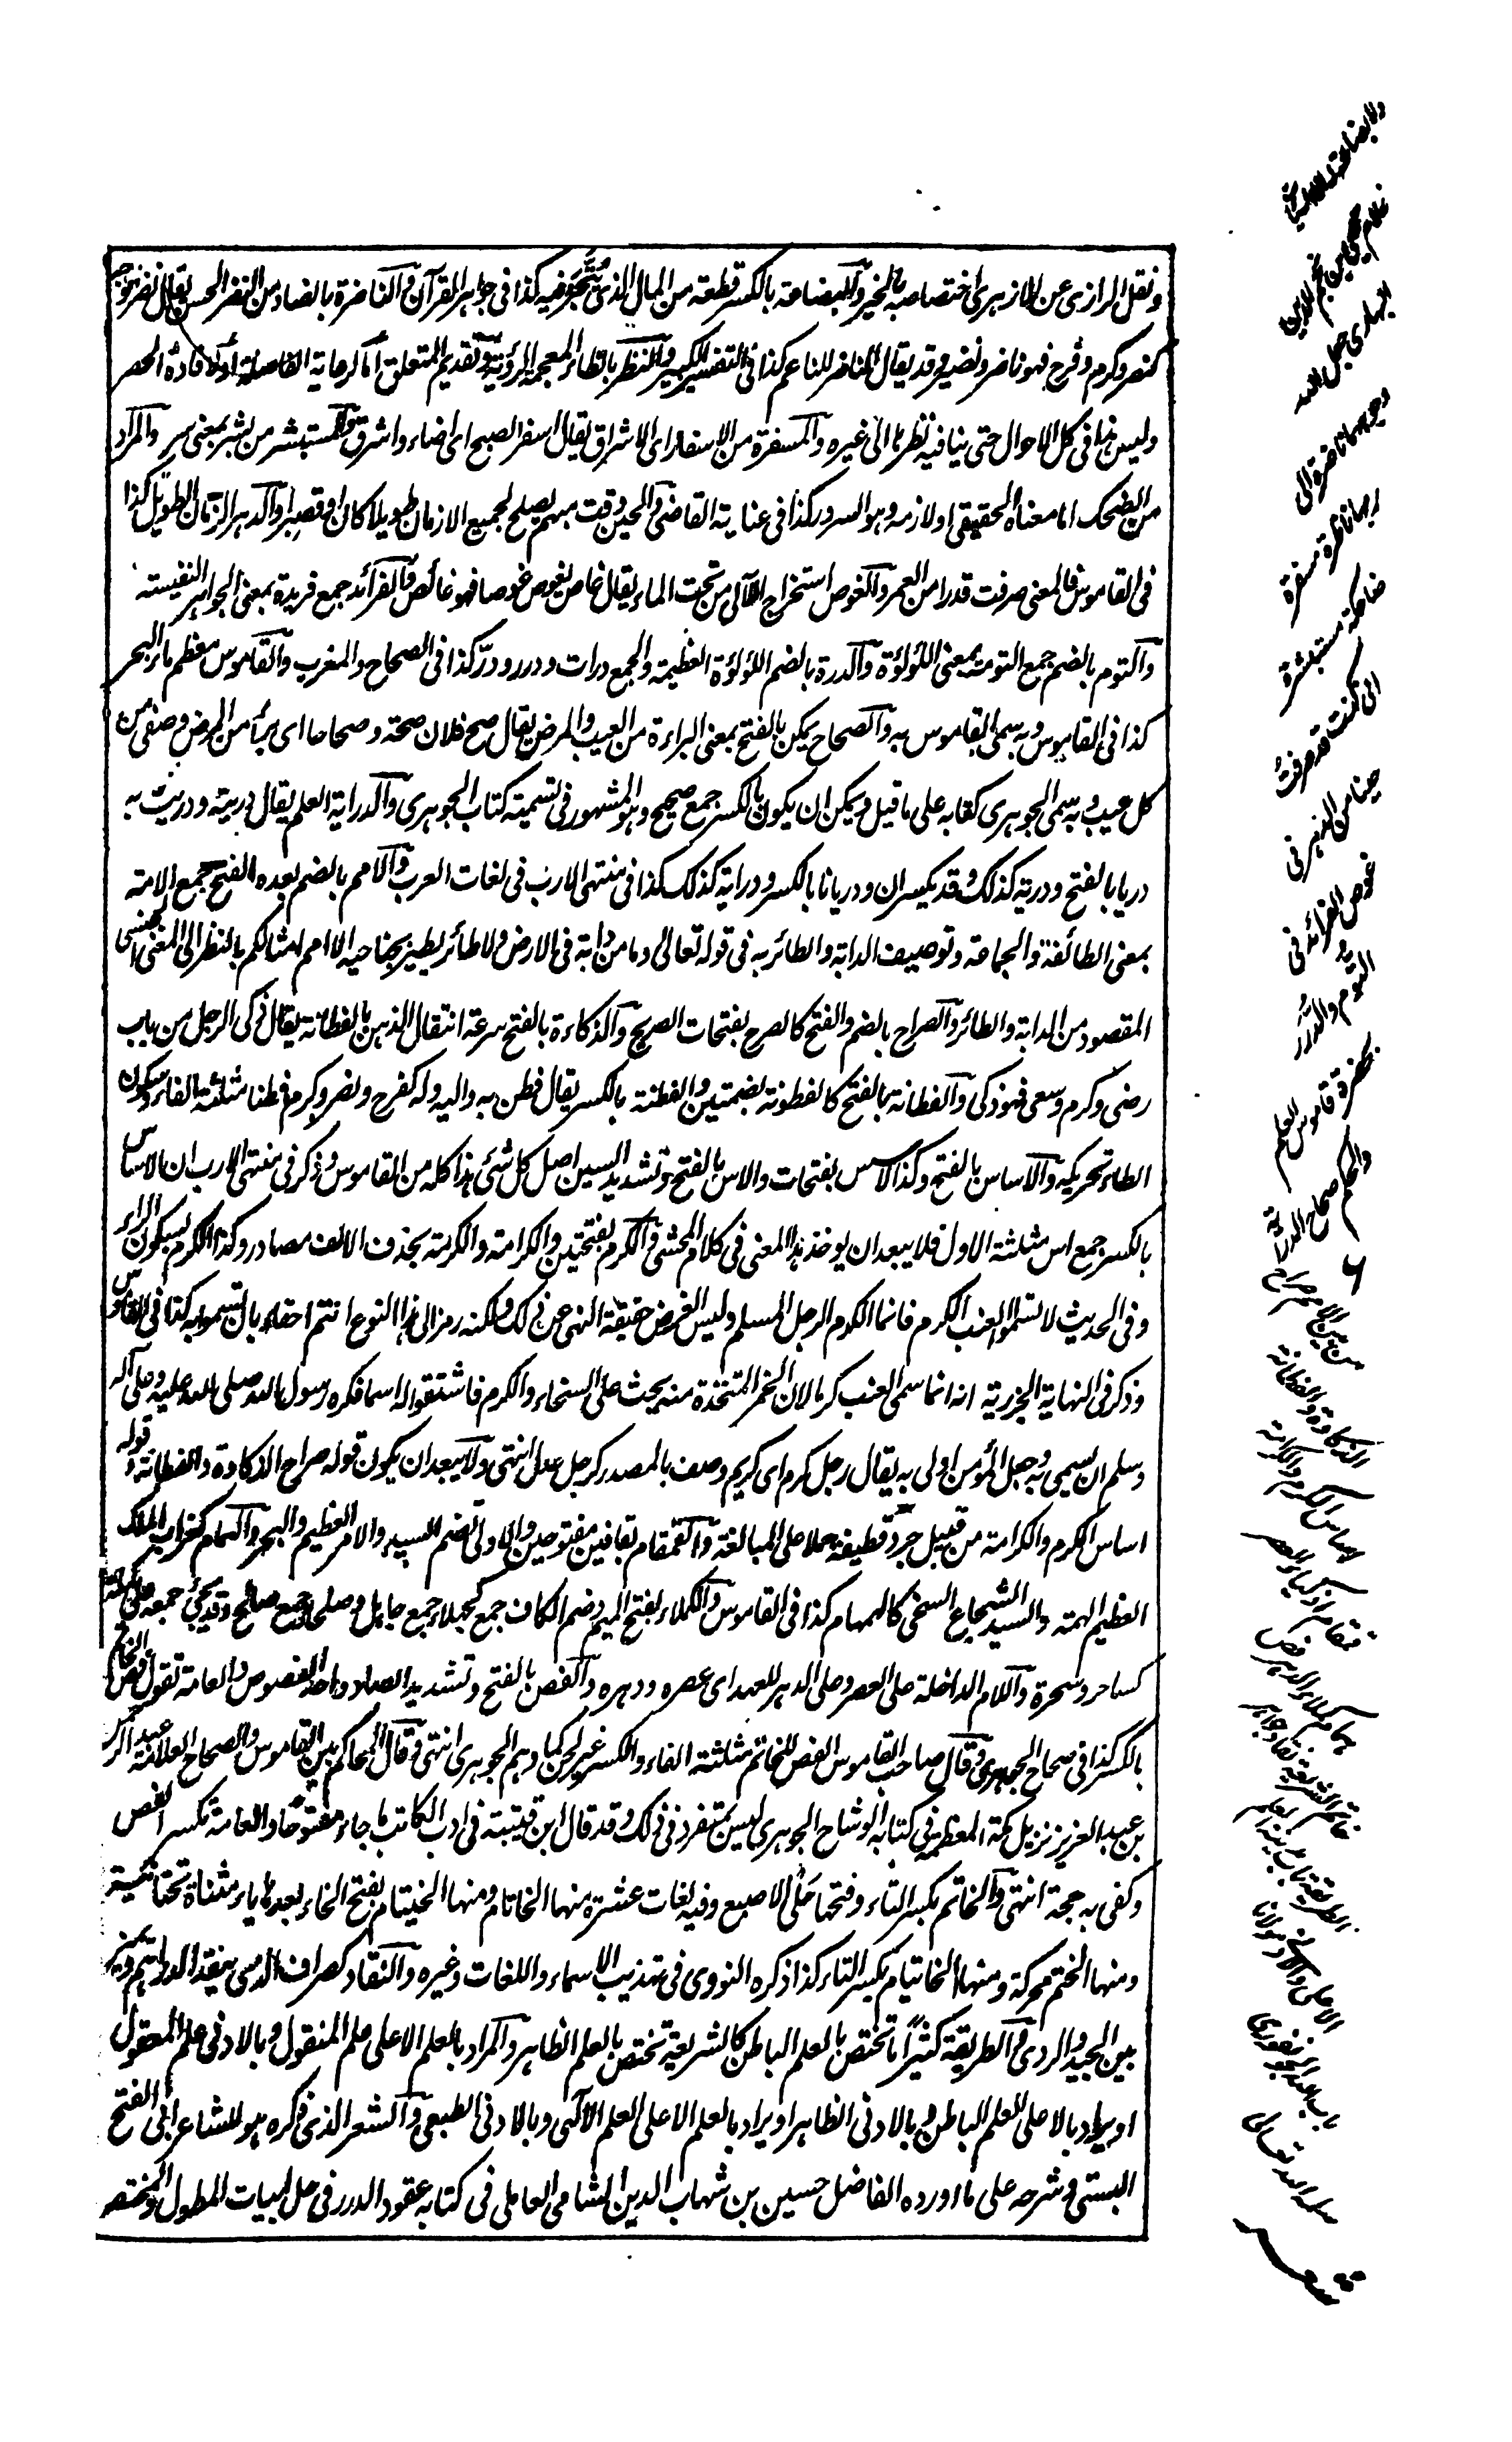 ونقل الرازى عن الازهرى اختصاصه بالخير والبضاعة بالكسر قطعة من المال الذى يتجر فيه كذا فى جواهر القرآن والناضرة بالضاد من النضر الحسن يقال نضر وجهه
كنصر وكرم وفرح فهو ناضر ونضير وقد يقال الناضر للناعم كذا فى التفسير الكبير والنظر بالظاء المعجمة الرؤية وتقديم المتعلق اما لرعاية الفاصلة او لافادة الحصر
وليس هذا فى كل الاحوال حتى ينافيه نظرها الى غيره والمسفرة من الاسفار اى الاشراق يقال اسفر الصبح اى اضاء واشرق والمستبشر من بشر بمعنى سر والمراد
من الضحك اما معناه الحقيقى او لازمه وهو السرور كذا فى عناية القاضى والحين وقت مبهم يصلح لجميع الازمان طويلا كان او قصيرا والدهر الزمان الطويل كذا
فى القاموس فالمعنى صرفت قدرا من العمر والغوص استخراج اللآلى من تحت الماء يقال غاص يغوص غوصا فهو غائص والفرائد جمع فريدة بمعنى الجواهر النفيسة
والتوم بالضم جمع التومة بمعنى اللؤلؤة والدرة بالضم اللؤلؤة العظيمة والجمع درات ودرر ودرّ كذا فى الصحاح والمغرب والقاموس معظم ماء البحر
كذا فى القاموس وبه سمى القاموس به والصحاح يمكن بالفتح بمعنى البراءة من العيب والمرض يقال صح فلان صحة وصحاحا اى برأ من المرض وصفى من
كل عيب وبه سمى الجوهرى كتابه على ما قيل ويمكن ان يكون بالكسر جمع صحيح وهو المشهور فى تسمية كتاب الجوهرى والدراية العلم يقال دريته ودريت به
دريا بالفتح ودرية كذلك وقد يكسران ودريانا بالكسر ودراية كذلك كذا فى منتهى الارب فى لغات العرب والامم بالضم بعده الفتح جمع الامة
بمعنى الطائفة والجماعة وتوصيف الدابة والطائر به فى قوله تعالى وما من دابة فى الارض ولا طائر يطير بجناحيه الا امم امثالكم بالنظر الى المعنى الجنسى
المقصود من الدابة والطائر والصراح بالضم والفتح كالصرح بفتحات الصريح والذكاءة بالفتح سرعة انتقال الذهن بالفطانة يقال ذكى الرجل من باب
رضى وكرم وسعى فهو ذكى والفطانة بالفتح كالفطونة بضمتين والفطنة بالكسر يقال فطن به واليه وله كفرح ونصر وكرم فطنا مثلثة الفاء وبسكون
الطاء وتحريكه والاساس بالفتح وكذا الاسس بفتحات والاس بالفتح وتشديد السين اصل كل شئ هذا كله من القاموس وذكر فى منتهى الارب ان الاساس
بالكسر جمع اس مثلثة الاول فلا يبعد ان يوخذ هذا المعنى فى كلام المحشى والكرم بفتحتين والكرامة والكرمة بحذف الالف مصادر وكذا الكرم بسكون الراء
وفى الحديث لا تسموا العنب الكرم فانما الكرم الرجل المسلم وليس الغرض حقيقة النهى عن ذلك ولكنه رمز الى ان هذا النوع انتم احقاء بان تسموا به كذا فى القاموس
وذكر فى النهاية الجزرية انه انما سمى العنب كرما لان الخمر المتخذة منه يحث على السخاء والكرم فاشتقوا له اسما فكره رسول الله صلى الله عليه وعلى آله
وسلم ان يسمى به وجعل المؤمن اولى به يقال رجل كرم اى كريم وصف بالمصدر كرجل عدل انتهى ولا يبعد ان يكون قوله صراح الذكاوة والفطانة وقوله
اساس الكرم والكرامة من قبيل جرد قطيفة حملا على المبالغة والقمقام بقافين مفتوحين والاولى تضم السيد والامر العظيم والبحر والهمام كغراب الملك
العظيم الهمة والسيد الشجاع السخى كالهمهام كذا فى القاموس والكملاء بفتح الميم وضم الكاف جمع كجهلاء جمع جاهل وصلحاء جمع صالح وقد يجئ جمعه على كملة
كساحر وسحرة واللام الداخلة على العصر وعلى الدهر للعهد اى عصره ودهره والفص بالفتح وتشديد الصاد واحد الفصوص والعامة تقول فص الخاتم
بالكسر كذا فى صحاح الجوهرى وقال صاحب القاموس الفص للخاتم مثلثة الفاء والكسر غير لحن كما وهم الجوهرى انتهى وقال الحاكم بين القاموس والصحاح العلامة عبد الرحمن
بن عبد العزيز نزيل مكة المعظمة فى كتابه الوشاح الجوهرى ليس بمتفرد فى ذلك وقد قال ابن قتيبة فى ادب الكاتب ما جاء مفتوحا والعامة تكسر الفص
وكفى به حجة انتهى والخاتم بكسر التاء وفتحها حلى الاصبع وفيه لغات عشرة منها الخاتام ومنها الخيتام بفتح الخاء بعدها ياء مثناة تحتانية
ومنها الختم محركة ومنها الخاتيام بكسر التاء كذا ذكره النووى فى تهذيب الاسماء واللغات وغيره والنقاد كصراف الذى ينقد الدراهم ويميز
بين الجيد والردى والطريقة كثيرا ما تختص بالعلم الباطن كالشريعة تختص بالعلم الظاهر والمراد بالعلم الاعلى علم المنقول وبالادنى علم المعقول
او يراد بالاعلى العلم الباطن وبالادنى الظاهر او يراد بالعلم الاعلى العلم الآلهى وبالادنى الطبعى والشعر الذى ذكره هو للشاعر ابى الفتح
البستى وشرحه على ما اورده الفاضل حسين بن شهاب الدين الشامى العاملى فى كتابه عقود الدرر فى حل ابيات المطول والمختصر
غلام يحيى بن نجم الدين
البهارى جعل الله
وجوههما ناضرة الى
ربهما ناظرة مسفرة
ضاحكة مستبشرة
انى كنت قد صرفت
حينا من الدهر فى
غوص الفرائد فى
التوم والدرر
قاموس العلم
والحكم صحاح الدراية
من بين الامم صراح
الذكاوة والفطانة
اساس الكرم والكرامة
قمقام اذكياء العصر
همام كملاء الدهر فص
خاتم الشريعة نقاد جواهر
الطريقة باب مدينة العلم
الاعلى والادنى مولانا
سلمه الله تعالى
شعر